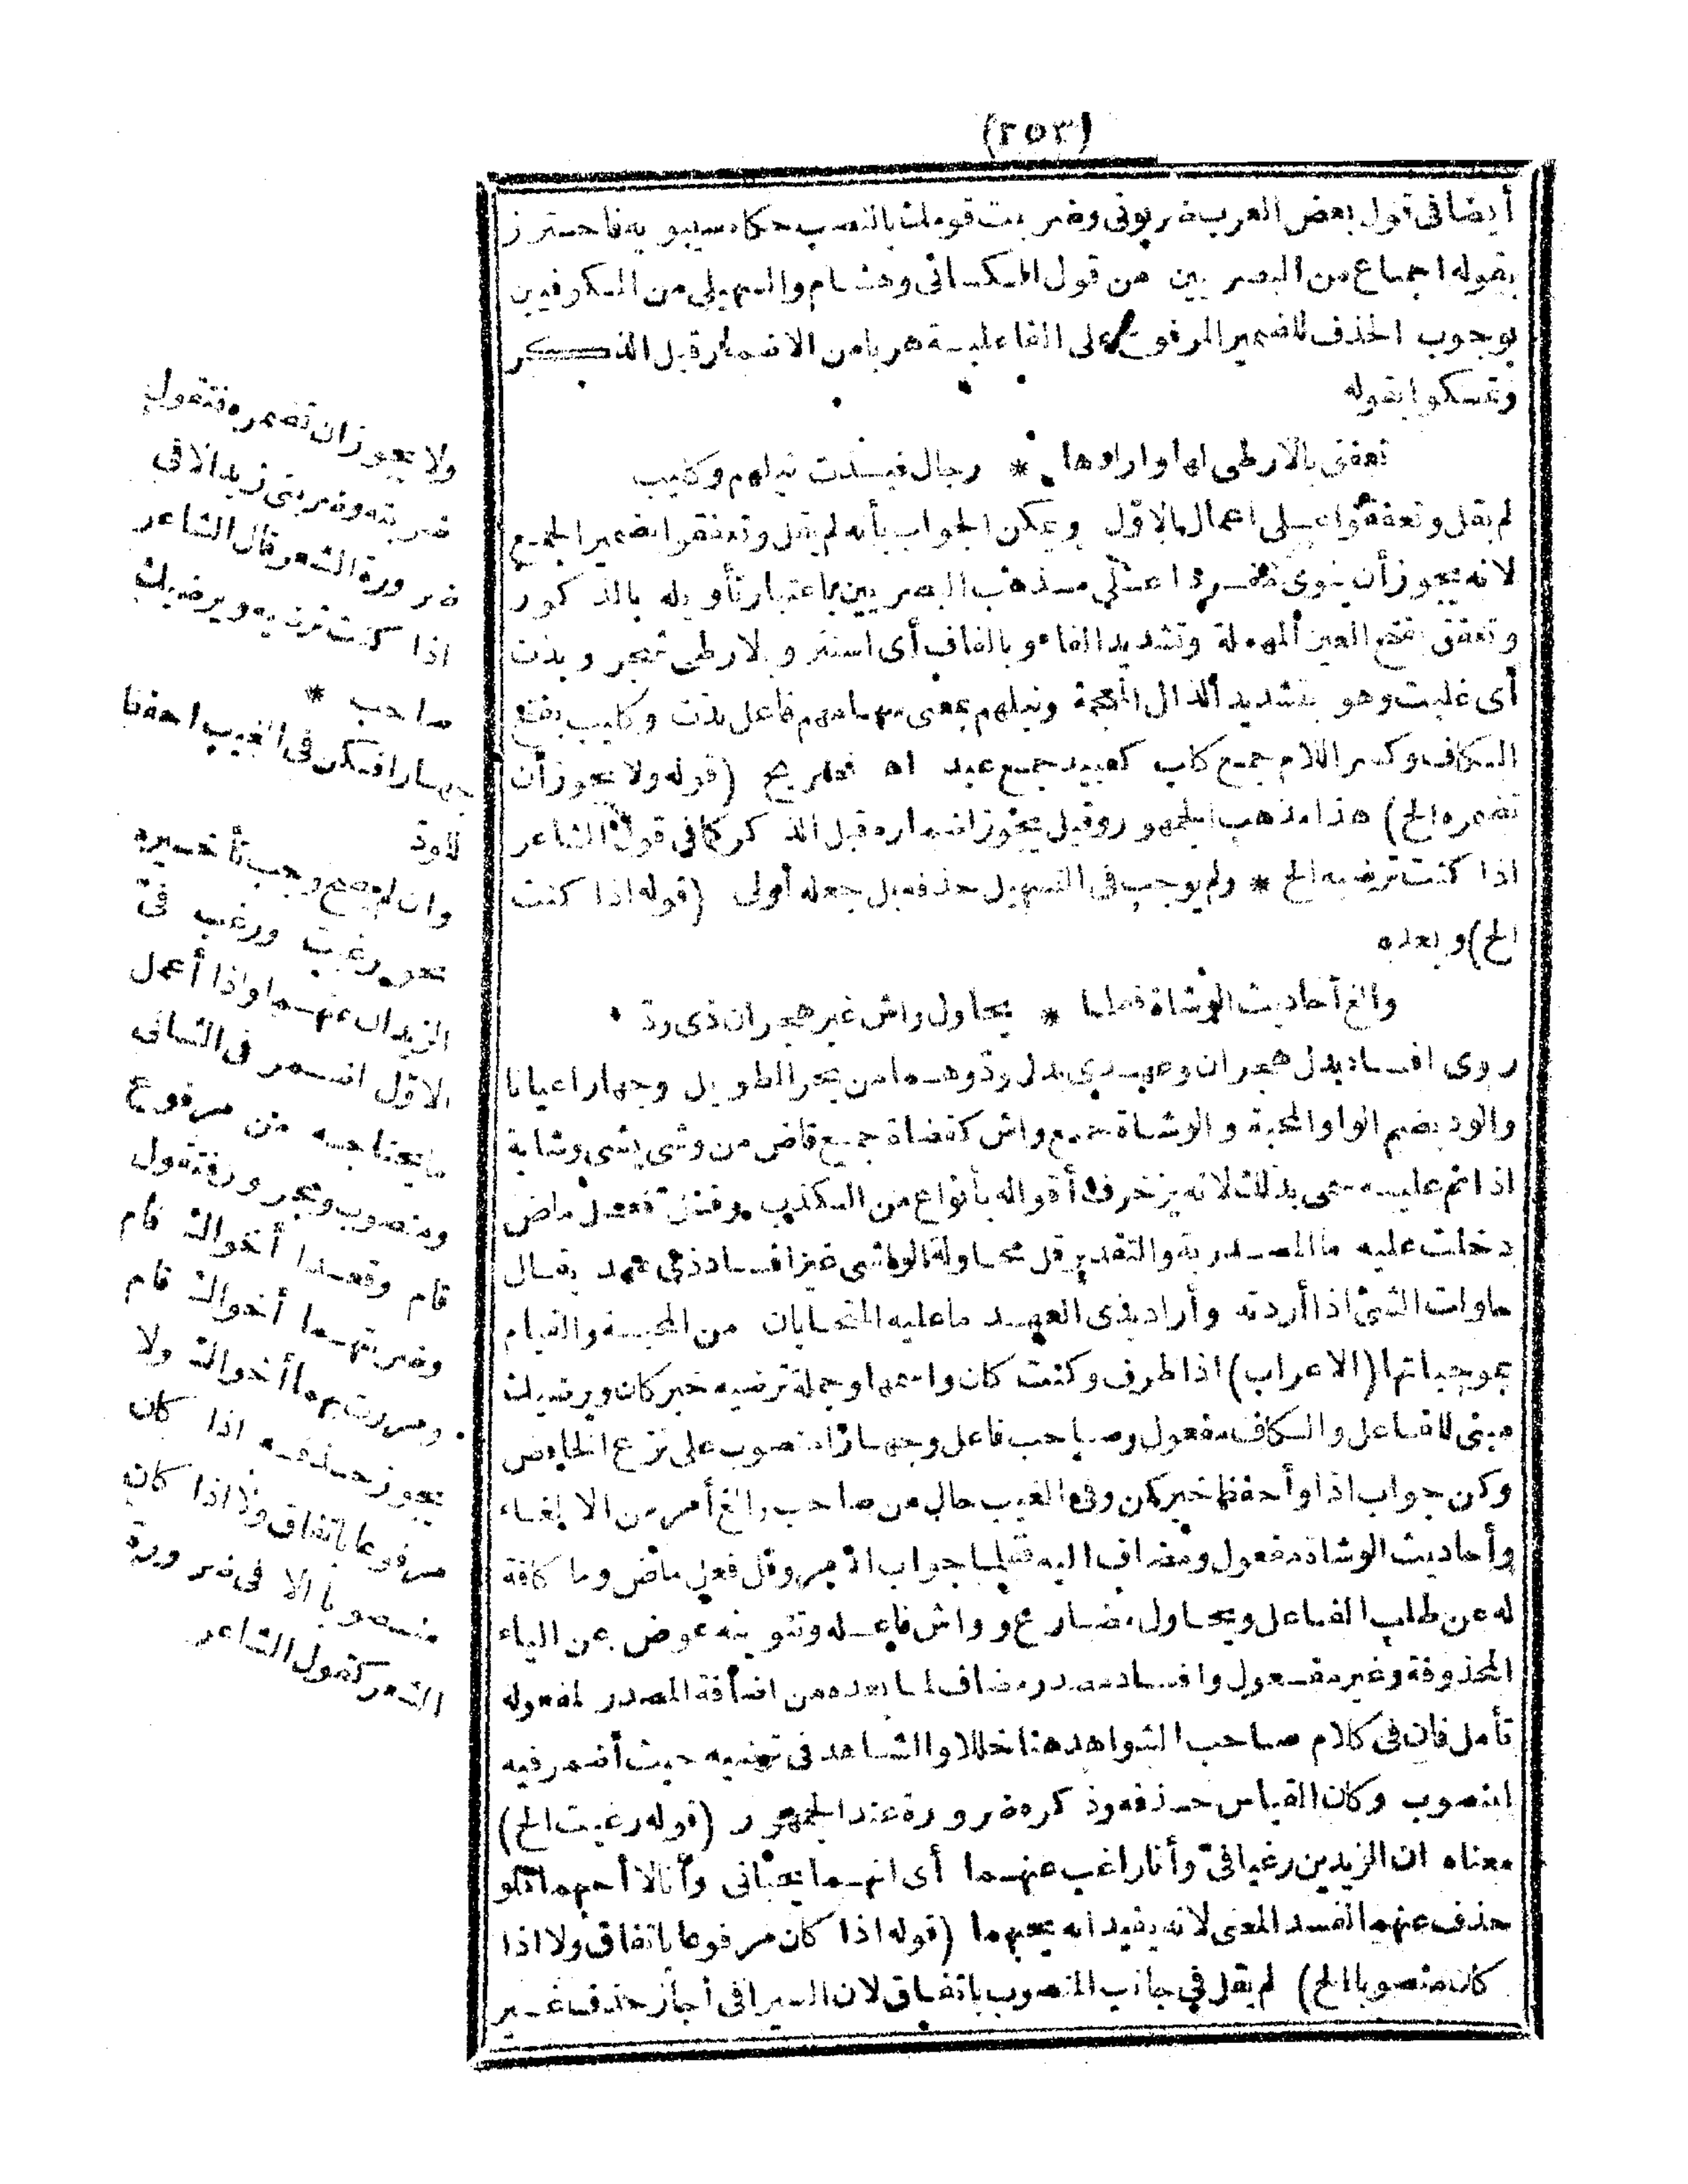 (٢٥٢)
أيضا فى قول بعض العرب ضربونى وضربت قومك بالنصب حكاه سيبويه فاحترز
بقوله اجماع من البصريين من قول الكسائى وهشام والسهيلى من الكوفيين
بوجوب الحذف للضمير المرفوع على الفاعلية هربا من الاضمار قبل الذكر
وتمسكوا بقوله
تعفق بالارطى لها وأرادها * رجال فبذت نبلهم وكليب
لم يقل وتعفقوا على اعمال الاوّل ويمكن الجواب بأنه لم يقل وتعفقوا بضمير الجمع
لانه يجوز أن ينوى مفردا على مذهب البصريين باعتبار تأويله بالمذكور
وتعفق بفتح العين المهملة وتشديد الفاء وبالقاف أى استتر والارطى شجر وبذت
أى غلبت وهو بتشديد الذال المعجمة ونبلهم بمعنى سهامهم فاعل بذت وكليب بفتح
الكاف وكسر اللام جمع كلب كعبيد جمع عبد اه تصريح (قوله ولا يجوز أن
تضمره الخ) هذا مذهب الجمهور وقيل يجوز اضماره قبل الذكر كما فى قول الشاعر
اذا كنت ترضيه الخ * ولم يوجب فى التسهيل حذفه بل جعله أولى (قوله اذا كنت
الخ) وبعده
والغ أحاديث الوشاة فقلما * يحاول واش غير هجران ذى ودّ
روى افساد بدل هجران وعهد بدل ودّ وهما من بحر الطويل وجهارا عيانا
والود بضم الواو المحبة والوشاة جمع واش كقضاة جمع قاض من وشى يشى وشاية
اذا نم عليه سمى بذلك لانه يزخرف أقواله بأنواع من الكذب وقل فعل ماض
دخلت عليه ما المصدرية والتقدير قل محاولة الواشى غير افساد ذى عهد يقال
حاولت الشئ اذا أردته وأراد بذى العهد ما عليه المتحابان من المحبة والقيام
بموجباتها (الاعراب) اذا ظرف وكنت كان واسمها وجملة ترضيه خبر كان ويرضيك
مبنى للفاعل والكاف مفعول وصاحب فاعل وجهارا منصوب على نزع الخافض
وكن جواب اذا وأحفظ خبر كن وفى الغيب حال من صاحب والغ أمر من الالغاء
وأحاديث الوشاة مفعول ومضاف اليه فقلما جواب الامر وقل فعل ماض وما كافة
له عن طلب الفاعل ويحاول مضارع وواش فاعله وتنوينه عوض عن الياء
المحذوفة وغير مفعول وافساد مصدر مضاف لما بعده من اضافة المصدر لمفعوله
تأمل فان فى كلام صاحب الشواهد هنا خللا والشاهد فى ترضيه حيث أضمر فيه
المنصوب وكان القياس حذفه وذكره ضرورة عند الجمهور (قوله رغبت الخ)
معناه ان الزيدين رغبا فىّ وأنا راغب عنهما أى انهما يحبانى وأنا لا أحبهما فلو
حذف عنهما لفسد المعنى لانه يفيد انه يحبهما (قوله اذا كان مرفوعا باتفاق ولا اذا
كان منصوبا الخ) لم يقل فى جانب المنصوب باتفاق لان السيرافى أجاز حذف غير
ولا يجوز ان تضمره فتقول
ضربته وضربنى زيد الا فى
ضرورة الشعر قال الشاعر
اذا كنت ترضيه ويرضيك
صاحب *
جهارا فكن فى الغيب احفظ
للودّ
وان لم يصح وجب تأخيره
نحو رغبت ورغب فىّ
الزيدان عنهما واذا أعمل
الاوّل اضمر فى الثانى
ما يحتاجه من مرفوع
ومنصوب ومجرور فتقول
قام وقعدا أخواك قام
وضربتهما أخواك قام
ومررت بهما أخواك ولا
يجوز حذفه اذا كان
مرفوعا باتفاق ولا اذا كان
منصوبا الا فى ضرورة
الشعر كقول الشاعر